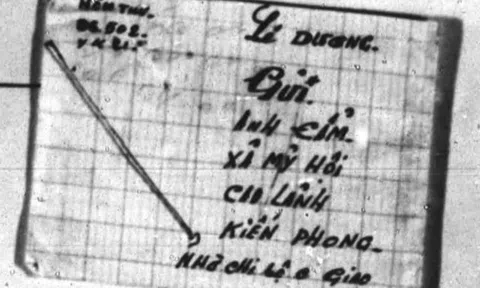 HÒM THƯ.
86.502-
Lí DƯƠNG.
GửI.
ANH CẨM.
XÃ MỸ HỘI
CAO LÃNH
KIẾN PHONG-
NHờ CHị GIAO